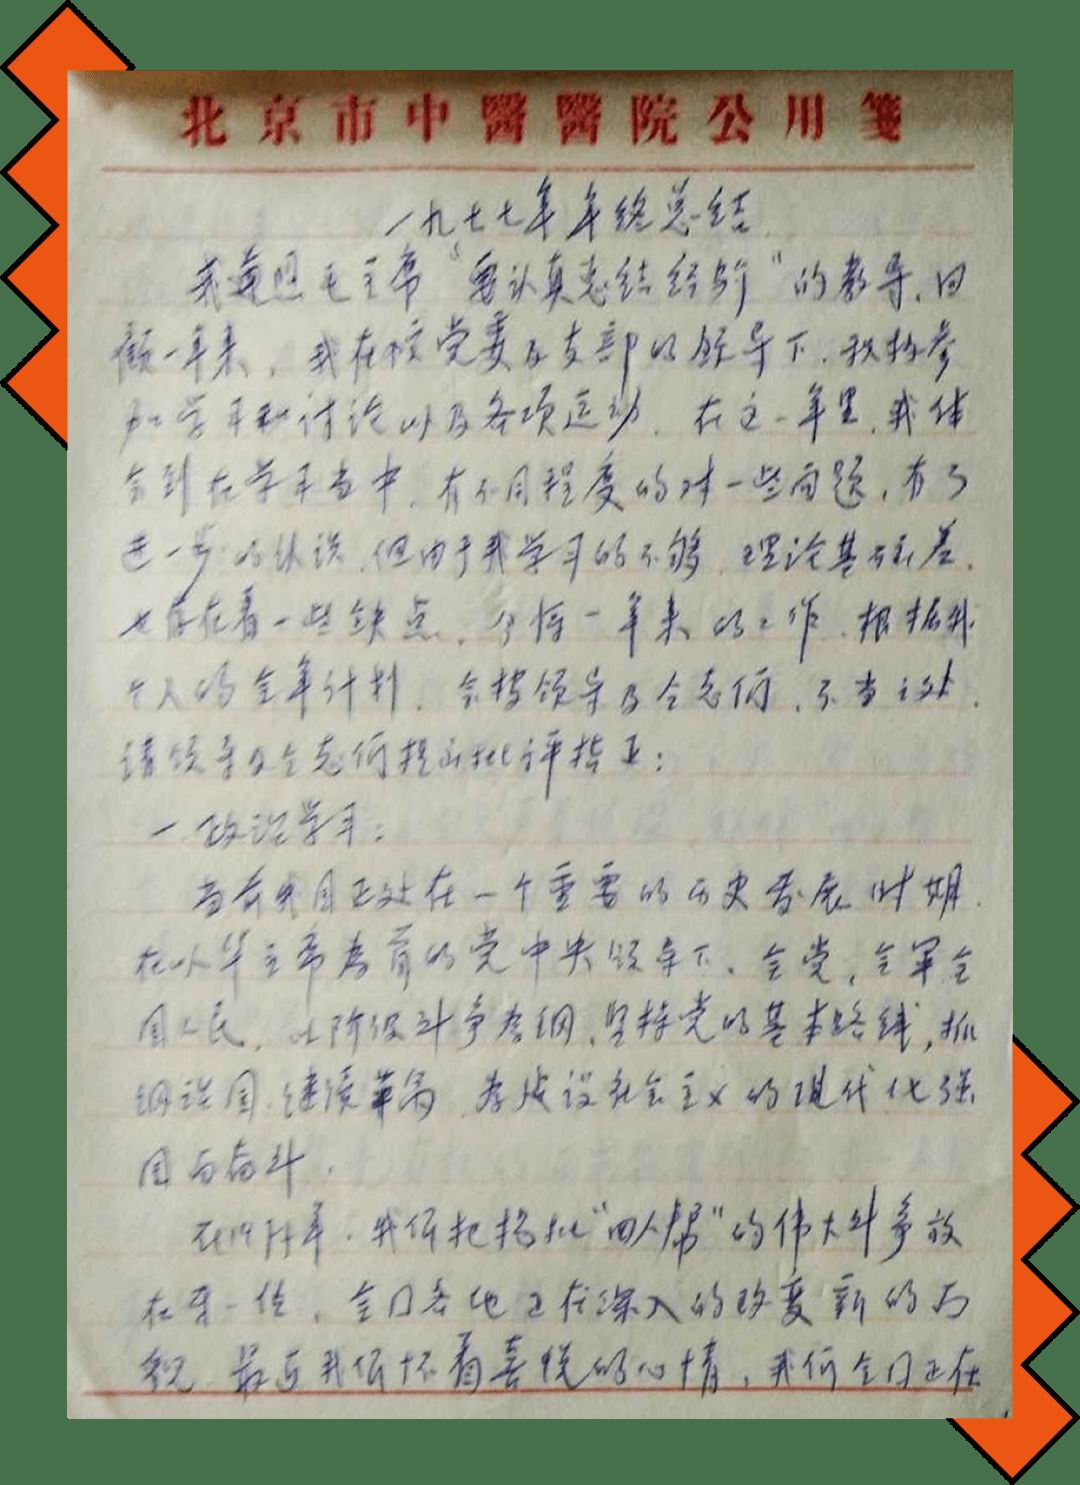 北京市中醫醫院公用箋
一九七七年年终总结
我遵照毛主席“要认真总结经验”的教导，回
顾一年来，我在校党委及支部的领导下，积极参
加学习和讨论以及各项运动。在这一年里，我体
会到在学习当中，有不同程度的对一些问题，有了
进一步的认识，但由于我学习的不够，理论基础差，
也存在着一些缺点，今将一年来的工作，根据我
个人的全年计划，会报领导及仝志们，不当之处，
请领导及仝志们提出批评指正：
一 政治学习：
当前我国正处在一个重要的历史发展时期，
在以华主席为首的党中央领导下，全党，全军全
国人民，以阶级斗争为纲，坚持党的基本路线，抓
纲治国，继续革命，为建设社会主义的现代化强
国而奋斗。
在1977年，我们把揭批“四人帮”的伟大斗争放
在第一位，全国各地正在深入的改变新的面
貌，最近我们怀着喜悦的心情，我们全国正在